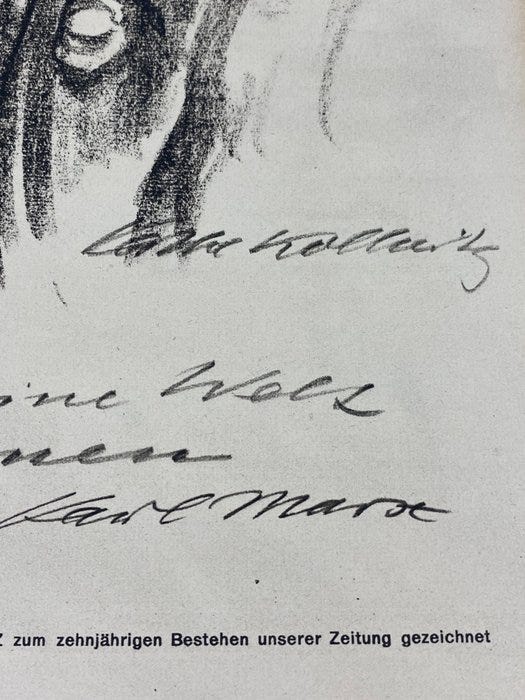 Käthe Kollwitz
ine Welt
nen
Karl Marx
Z zum zehnjährigen Bestehen unserer Zeitung gezeichnet